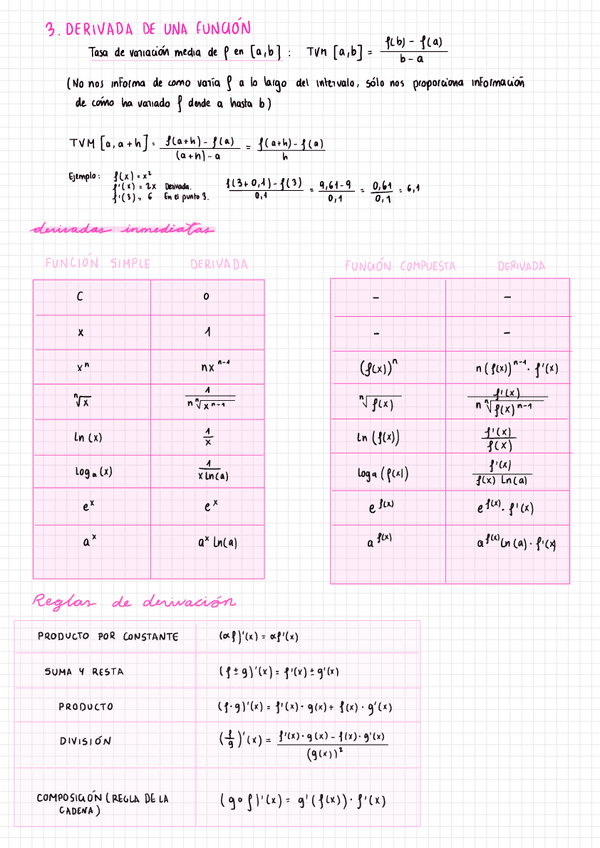 3. DERIVADA DE UNA FUNCIÓN
Tasa de variación media de f en [a,b] : TVM [a,b] = f(b) - f(a) / b - a
(No nos informa de como varía f a lo largo del intervalo, sólo nos proporciona información
de cómo ha variado f desde a hasta b)
TVM [a, a+h] = f(a+h) - f(a) / (a+h) - a = f(a+h) - f(a) / h
Ejemplo: f(x) = x²
f'(x) = 2x Derivada.
f'(3) = 6 En el punto 3.
f(3+0,1) - f(3) / 0,1 = 9,61-9 / 0,1 = 0,61 / 0,1 = 6,1
derivadas inmediatas
FUNCIÓN SIMPLE DERIVADA
C 0
x 1
xⁿ nxⁿ⁻¹
ⁿ√x 1 / n ⁿ√xⁿ⁻¹
ln (x) 1 / x
logₐ (x) 1 / x ln(a)
eˣ eˣ
aˣ aˣ ln(a)
FUNCIÓN COMPUESTA DERIVADA
- -
- -
(f(x))ⁿ n (f(x))ⁿ⁻¹ · f'(x)
ⁿ√f(x) f'(x) / n ⁿ√f(x)ⁿ⁻¹
ln (f(x)) f'(x) / f(x)
logₐ (f(x)) f'(x) / f(x) ln(a)
e^f(x) e^f(x) · f'(x)
a^f(x) a^f(x) ln(a) · f'(x)
Reglas de derivación
PRODUCTO POR CONSTANTE (αf)'(x) = αf'(x)
SUMA Y RESTA (f ± g)'(x) = f'(x) ± g'(x)
PRODUCTO (f·g)'(x) = f'(x) · g(x) + f(x) · g'(x)
DIVISIÓN (f/g)'(x) = f'(x) · g(x) - f(x) · g'(x) / (g(x))²
COMPOSICIÓN (REGLA DE LA
CADENA) (g∘f)'(x) = g'(f(x)) · f'(x)